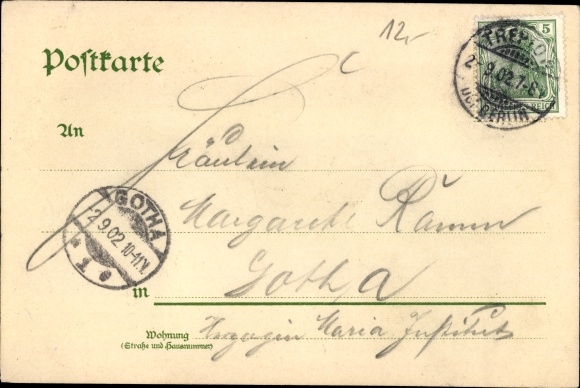 12,-
5
Postkarte
TREPTOW
2.9.02.7-8
BERLIN
REICH
An
Fräulein
GOTHA
2.9.02.10-11V.
* 1 *
Margarete Ramm
in Gotha
Wohnung
(Straße und Hausnummer)
Herzogin Maria Institut